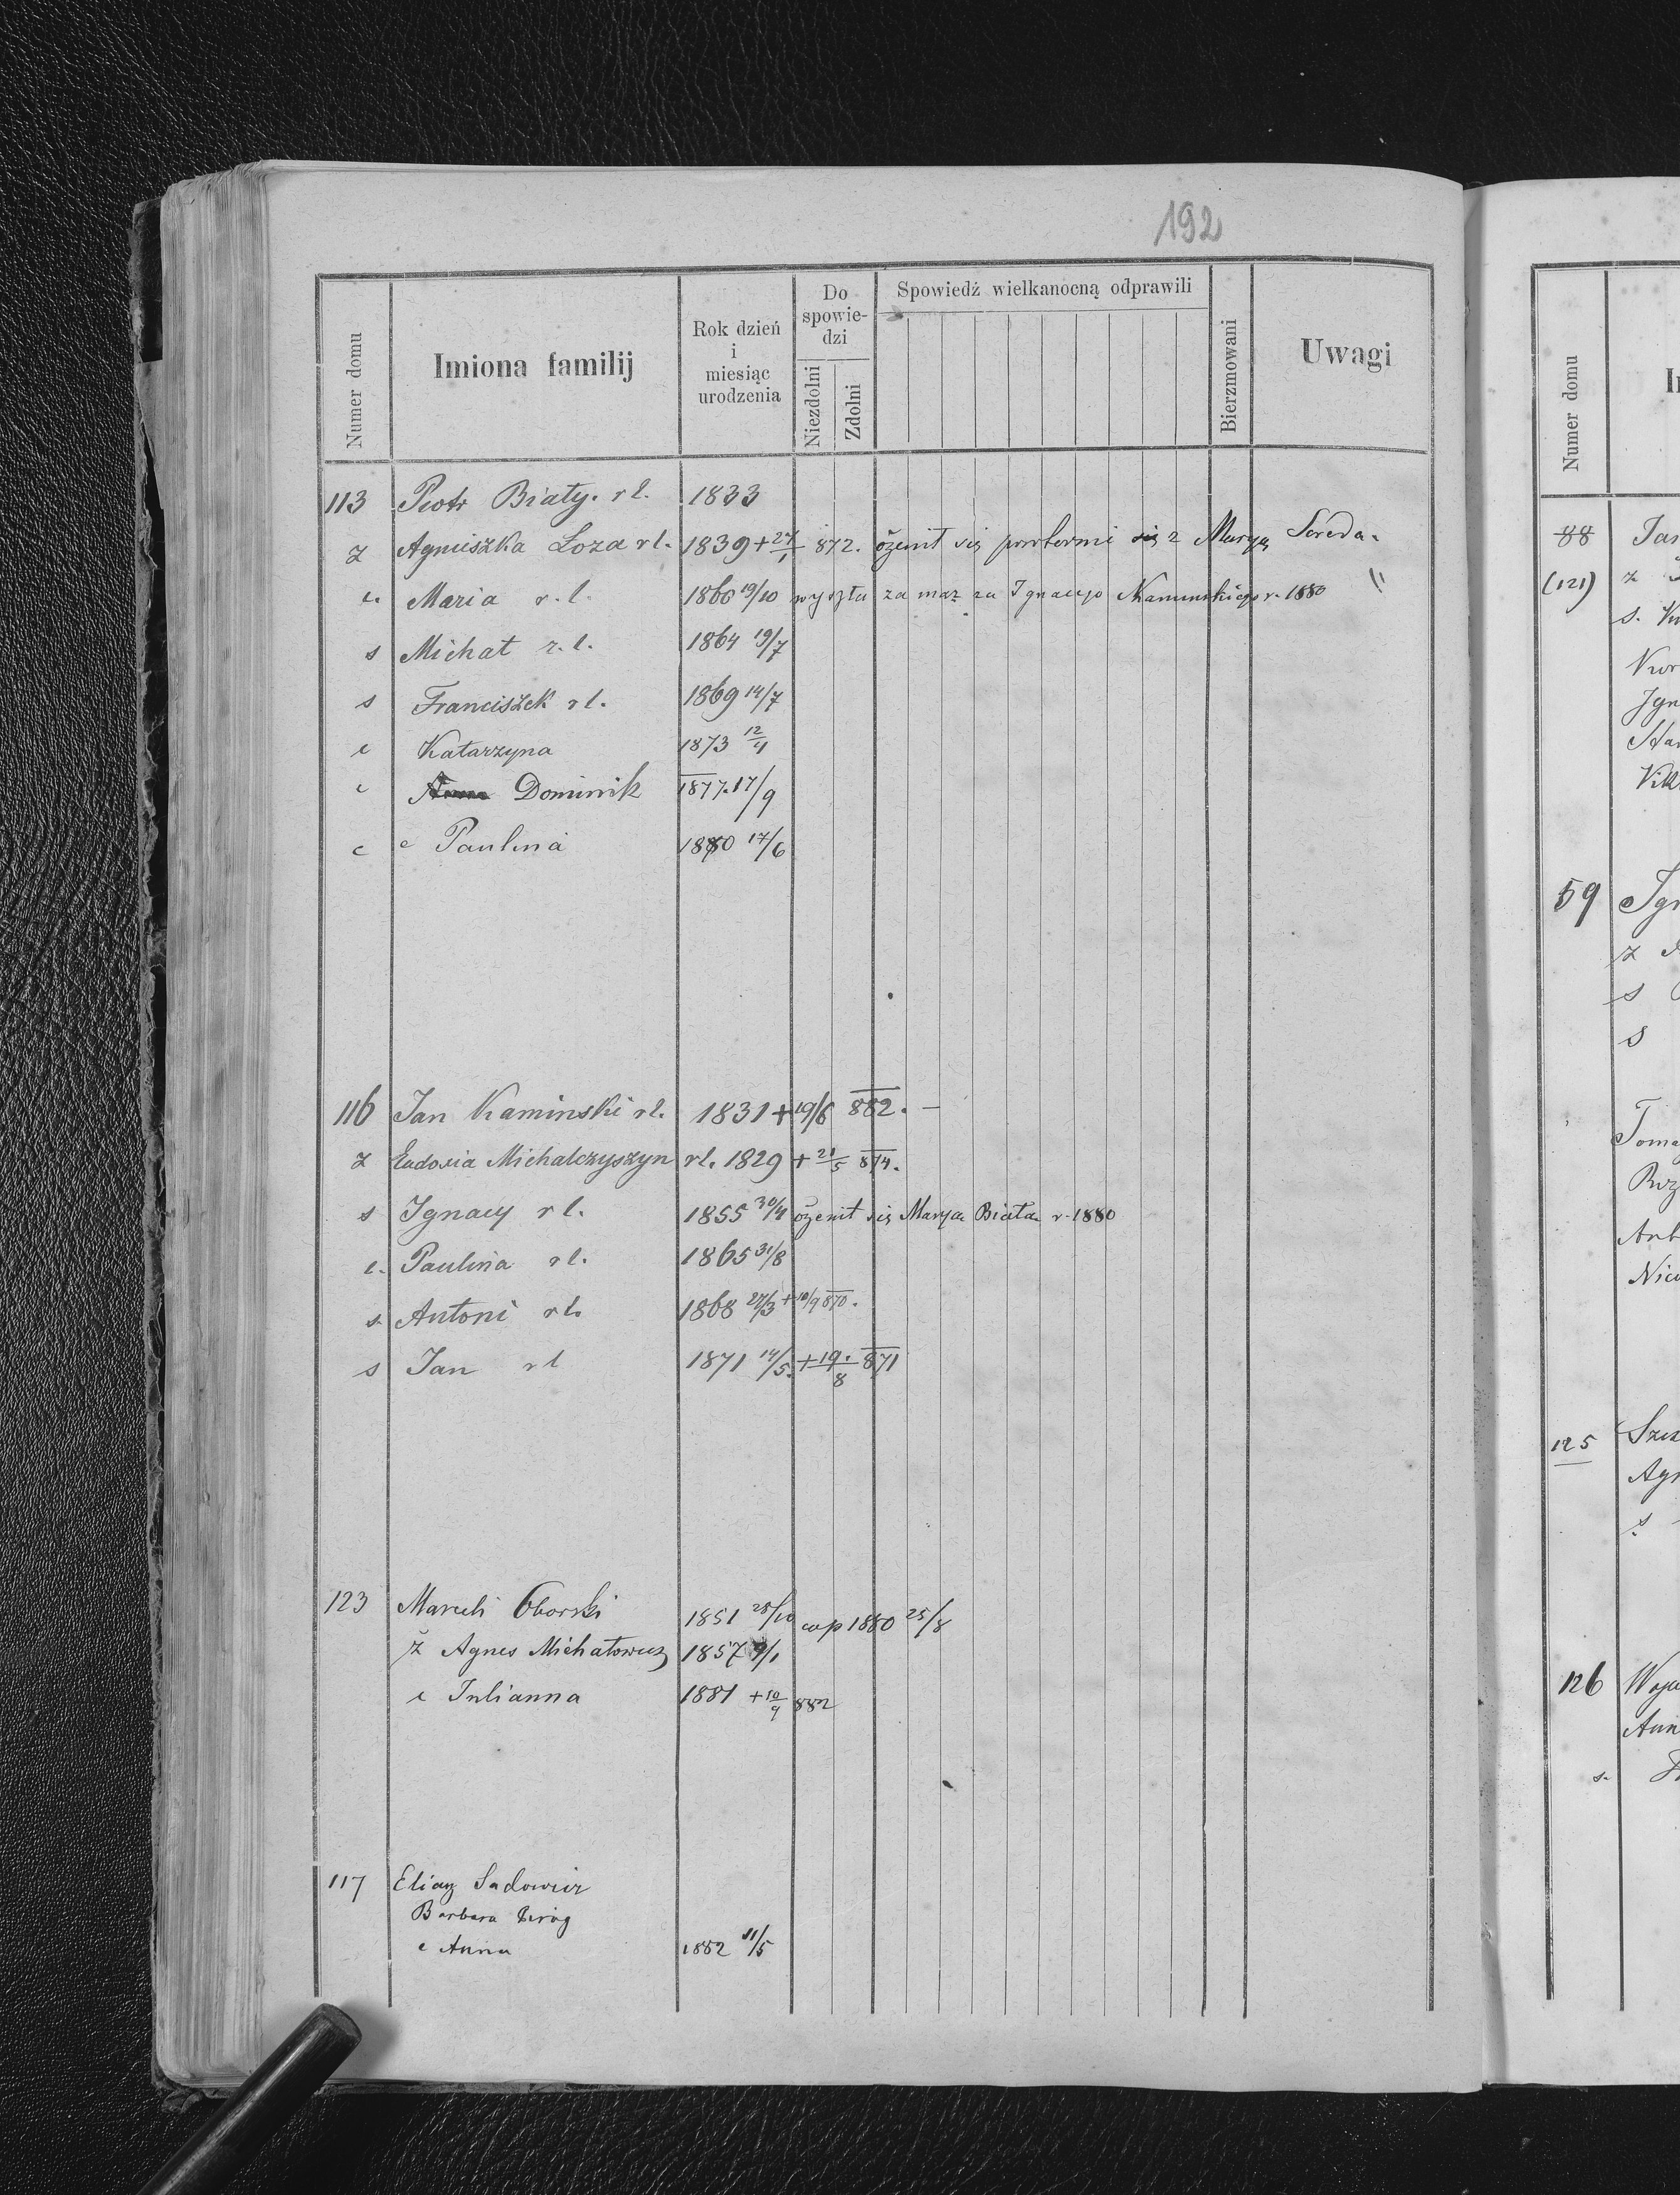 192
Numer domu
Imiona familij
Rok dzień i miesiąc urodzenia
Do spowiedzi
Niezdolni
Zdolni
Spowiedź wielkanocną odprawili
Bierzmowani
Uwagi
113 Piotr Biały. rl. 1833
ż Agniszka Łoza rl. 1839 + 27/1 872. ożenił się powtornie się z Maryą Sereda.
c. Maria r.l. 1866 19/10 wyszła za maż za Ignacego Kamunskiego r. 1880 "
s Michał r.l. 1864 19/7
s Franciszek rl. 1869 14/7
c Katarzyna 1873 12/4
c Anna Dominik 1877. 17/9
c c Paulina 1880 17/6
116 Jan Kaminski rl. 1831 + 19/6 882. —
ż Eudoxia Michalczyszyn rl. 1829 + 21/5 874.
s Ignacy rl. 1855 30/4 ożenił się Marya Biała r. 1880
c. Paulina rl. 1865 31/8
s. Antoni rl. 1868 27/3 + 10/9 870.
s Jan rl 1871 14/5. + 19./8 871
123 Marceli Oborski 1851 28/10 cop 1880 25/8
ż Agnes Michałowicz 1857 9/1
c Julianna 1881 + 10/9 882
117 Eliasz Sadowicz
Barbara Pirog
c Anna 1882 11/5
Numer domu
88
(121) z
s.
59
z
s
s
125
s
126
s.